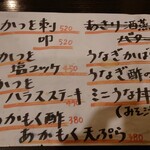 かつを刺 520
叩 520
かつを
塩ユッケ
かつを
ハラスステーキ
あかもく酢 380
あかもく天ぷら 380
あさり酒蒸
バター
うなぎかば
うなぎ酢の
ミニうな丼